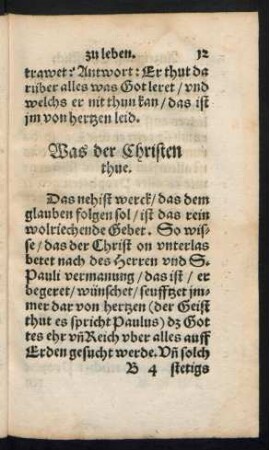 zu leben. 12
trawet: Antwort: Er thut da
rüber alles was Got leret / vnd
welchs er nit thun kan / das ist
jm von hertzen leid.
Was der Christen
thue.
Das nehist werck / das dem
glauben folgen sol / ist das rein
wolriechende Gebet. So wis-
se / das der Christ on vnterlas
betet nach des Herren vnd S.
Pauli vermanung / das ist / er
begeret / wünschet / seufftzet jm-
mer dar von hertzen (der Geist
thut es spricht Paulus) dz Got
tes ehr vñ Reich vber alles auff
Erden gesucht werde. Vñ solch
B 4 stetigs